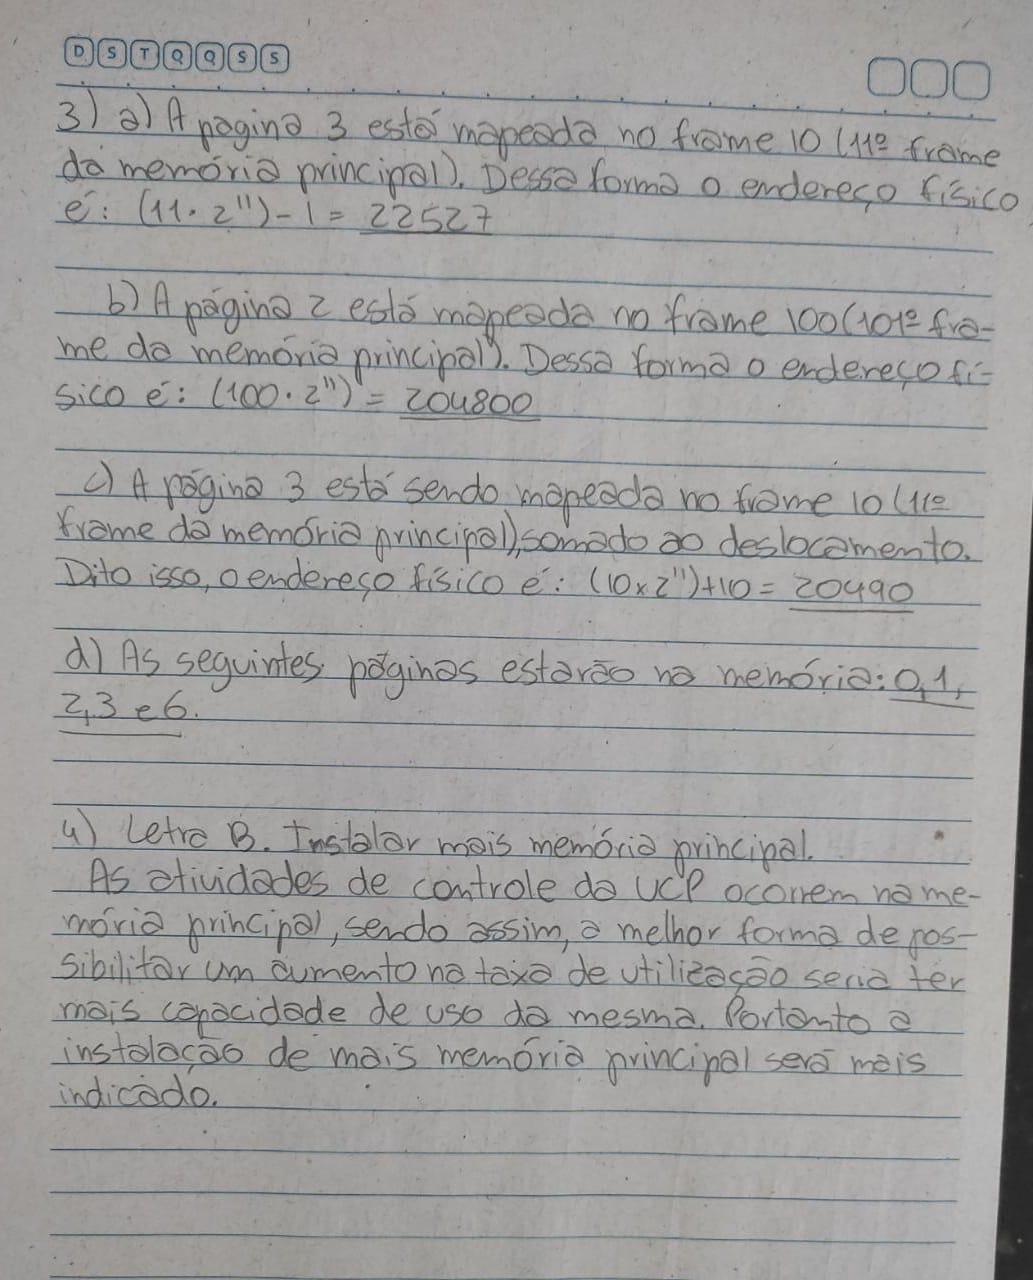 D S T Q Q S S
3) a) A pagina 3 está mapeada no frame 10 (11º frame
da memória principal). Dessa forma o endereço físico
é: (11 . 2¹¹) - 1 = 22527
b) A página 2 está mapeada no frame 100 (101º fra-
me da memória principal). Dessa forma o endereço fí-
sico é: (100 . 2¹¹) = 204800
c) A página 3 está sendo mapeada no frame 10 (11º
frame da memória principal), somado ao deslocamento.
Dito isso, o endereço físico é: (10 x 2¹¹) + 10 = 20490
d) As seguintes páginas estarão na memória: 0, 1,
2, 3 e 6.
4) Letra B. Instalar mais memória principal.
As atividades de controle da UCP ocorrem na me-
mória principal, sendo assim, a melhor forma de pos-
sibilitar um aumento na taxa de utilização seria ter
mais capacidade de uso da mesma. Portanto a
instalação de mais memória principal será mais
indicado.